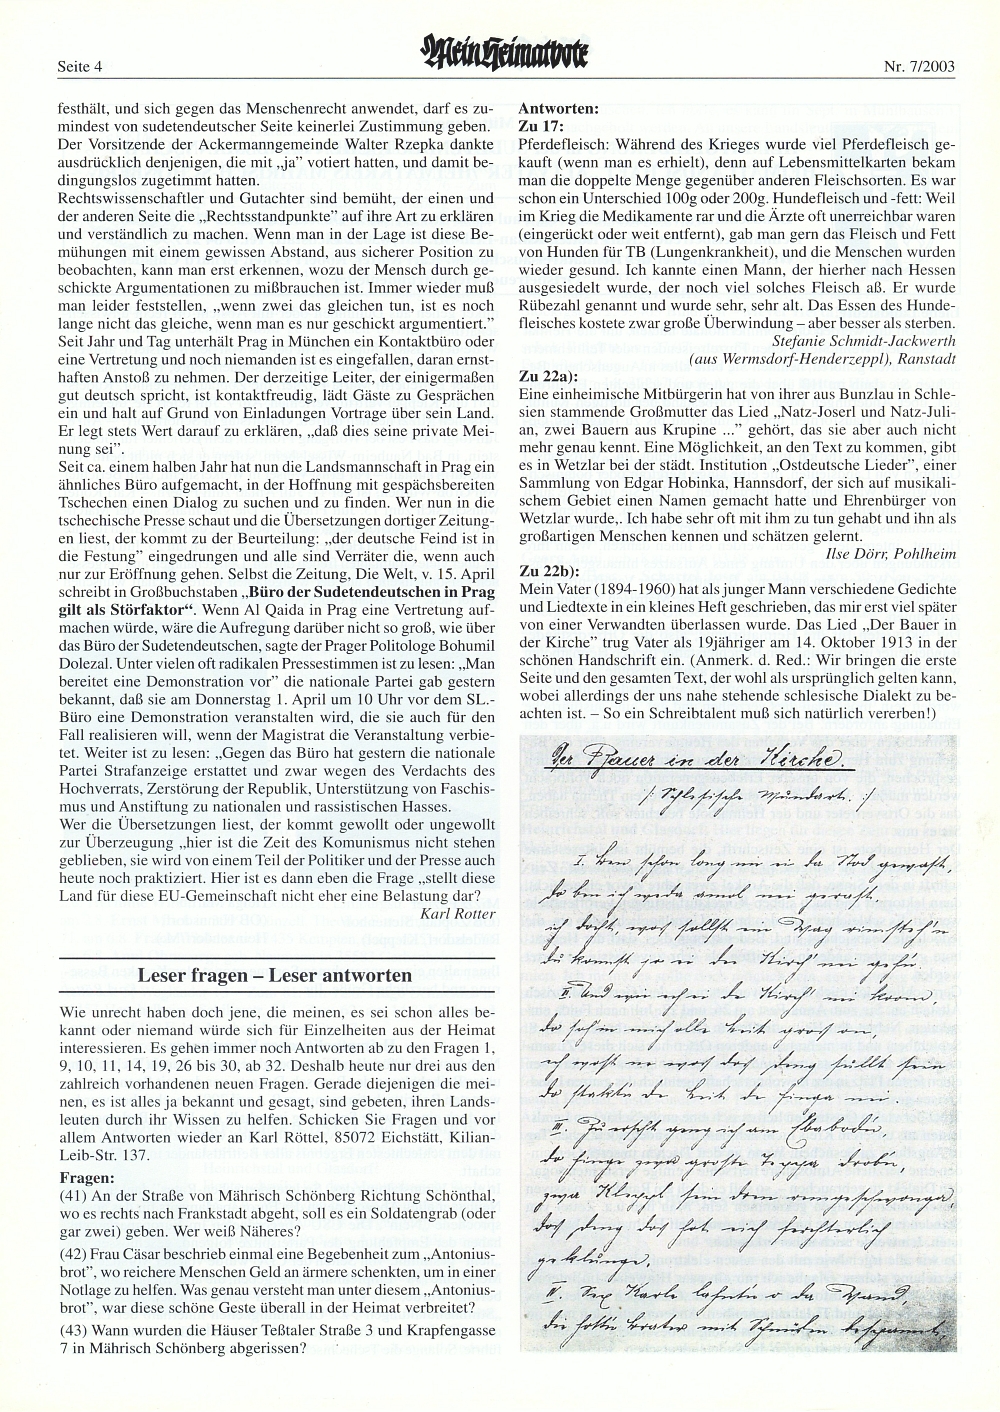 Seite 4
Mein Heimatbote
Nr. 7/2003
festhält, und sich gegen das Menschenrecht anwendet, darf es zu-
mindest von sudetendeutscher Seite keinerlei Zustimmung geben.
Der Vorsitzende der Ackermanngemeinde Walter Rzepka dankte
ausdrücklich denjenigen, die mit „ja” votiert hatten, und damit be-
dingungslos zugetimmt hatten.
Rechtswissenschaftler und Gutachter sind bemüht, der einen und
der anderen Seite die „Rechtsstandpunkte” auf ihre Art zu erklären
und verständlich zu machen. Wenn man in der Lage ist diese Be-
mühungen mit einem gewissen Abstand, aus sicherer Position zu
beobachten, kann man erst erkennen, wozu der Mensch durch ge-
schickte Argumentationen zu mißbrauchen ist. Immer wieder muß
man leider feststellen, „wenn zwei das gleichen tun, ist es noch
lange nicht das gleiche, wenn man es nur geschickt argumentiert.”
Seit Jahr und Tag unterhält Prag in München ein Kontaktbüro oder
eine Vertretung und noch niemanden ist es eingefallen, daran ernst-
haften Anstoß zu nehmen. Der derzeitige Leiter, der einigermaßen
gut deutsch spricht, ist kontaktfreudig, lädt Gäste zu Gesprächen
ein und halt auf Grund von Einladungen Vortrage über sein Land.
Er legt stets Wert darauf zu erklären, „daß dies seine private Mei-
nung sei”.
Seit ca. einem halben Jahr hat nun die Landsmannschaft in Prag ein
ähnliches Büro aufgemacht, in der Hoffnung mit gespächsbereiten
Tschechen einen Dialog zu suchen und zu finden. Wer nun in die
tschechische Presse schaut und die Übersetzungen dortiger Zeitung-
en liest, der kommt zu der Beurteilung: „der deutsche Feind ist in
die Festung” eingedrungen und alle sind Verräter die, wenn auch
nur zur Eröffnung gehen. Selbst die Zeitung, Die Welt, v. 15. April
schreibt in Großbuchstaben „Büro der Sudetendeutschen in Prag
gilt als Störfaktor“. Wenn Al Qaida in Prag eine Vertretung auf-
machen würde, wäre die Aufregung darüber nicht so groß, wie über
das Büro der Sudetendeutschen, sagte der Prager Politologe Bohumil
Dolezal. Unter vielen oft radikalen Pressestimmen ist zu lesen: „Man
bereitet eine Demonstration vor” die nationale Partei gab gestern
bekannt, daß sie am Donnerstag 1. April um 10 Uhr vor dem SL.-
Büro eine Demonstration veranstalten wird, die sie auch für den
Fall realisieren will, wenn der Magistrat die Veranstaltung verbie-
tet. Weiter ist zu lesen: „Gegen das Büro hat gestern die nationale
Partei Strafanzeige erstattet und zwar wegen des Verdachts des
Hochverrats, Zerstörung der Republik, Unterstützung von Faschis-
mus und Anstiftung zu nationalen und rassistischen Hasses.
Wer die Übersetzungen liest, der kommt gewollt oder ungewollt
zur Überzeugung „hier ist die Zeit des Komunismus nicht stehen
geblieben, sie wird von einem Teil der Politiker und der Presse auch
heute noch praktiziert. Hier ist es dann eben die Frage „stellt diese
Land für diese EU-Gemeinschaft nicht eher eine Belastung dar?
Karl Rotter
Leser fragen – Leser antworten
Wie unrecht haben doch jene, die meinen, es sei schon alles be-
kannt oder niemand würde sich für Einzelheiten aus der Heimat
interessieren. Es gehen immer noch Antworten ab zu den Fragen 1,
9, 10, 11, 14, 19, 26 bis 30, ab 32. Deshalb heute nur drei aus den
zahlreich vorhandenen neuen Fragen. Gerade diejenigen die mei-
nen, es ist alles ja bekannt und gesagt, sind gebeten, ihren Lands-
leuten durch ihr Wissen zu helfen. Schicken Sie Fragen und vor
allem Antworten wieder an Karl Röttel, 85072 Eichstätt, Kilian-
Leib-Str. 137.
Fragen:
(41) An der Straße von Mährisch Schönberg Richtung Schönthal,
wo es rechts nach Frankstadt abgeht, soll es ein Soldatengrab (oder
gar zwei) geben. Wer weiß Näheres?
(42) Frau Cäsar beschrieb einmal eine Begebenheit zum „Antonius-
brot”, wo reichere Menschen Geld an ärmere schenkten, um in einer
Notlage zu helfen. Was genau versteht man unter diesem „Antonius-
brot”, war diese schöne Geste überall in der Heimat verbreitet?
(43) Wann wurden die Häuser Teßtaler Straße 3 und Krapfengasse
7 in Mährisch Schönberg abgerissen?
Antworten:
Zu 17:
Pferdefleisch: Während des Krieges wurde viel Pferdefleisch ge-
kauft (wenn man es erhielt), denn auf Lebensmittelkarten bekam
man die doppelte Menge gegenüber anderen Fleischsorten. Es war
schon ein Unterschied 100g oder 200g. Hundefleisch und -fett: Weil
im Krieg die Medikamente rar und die Ärzte oft unerreichbar waren
(eingerückt oder weit entfernt), gab man gern das Fleisch und Fett
von Hunden für TB (Lungenkrankheit), und die Menschen wurden
wieder gesund. Ich kannte einen Mann, der hierher nach Hessen
ausgesiedelt wurde, der noch viel solches Fleisch aß. Er wurde
Rübezahl genannt und wurde sehr, sehr alt. Das Essen des Hunde-
fleisches kostete zwar große Überwindung – aber besser als sterben.
Stefanie Schmidt-Jackwerth
(aus Wermsdorf-Henderzeppl), Ranstadt
Zu 22a):
Eine einheimische Mitbürgerin hat von ihrer aus Bunzlau in Schle-
sien stammende Großmutter das Lied „Natz-Joserl und Natz-Juli-
an, zwei Bauern aus Krupine ...” gehört, das sie aber auch nicht
mehr genau kennt. Eine Möglichkeit, an den Text zu kommen, gibt
es in Wetzlar bei der städt. Institution „Ostdeutsche Lieder”, einer
Sammlung von Edgar Hobinka, Hannsdorf, der sich auf musikali-
schem Gebiet einen Namen gemacht hatte und Ehrenbürger von
Wetzlar wurde,. Ich habe sehr oft mit ihm zu tun gehabt und ihn als
großartigen Menschen kennen und schätzen gelernt.
Ilse Dörr, Pohlheim
Zu 22b):
Mein Vater (1894-1960) hat als junger Mann verschiedene Gedichte
und Liedtexte in ein kleines Heft geschrieben, das mir erst viel später
von einer Verwandten überlassen wurde. Das Lied „Der Bauer in
der Kirche” trug Vater als 19jähriger am 14. Oktober 1913 in der
schönen Handschrift ein. (Anmerk. d. Red.: Wir bringen die erste
Seite und den gesamten Text, der wohl als ursprünglich gelten kann,
wobei allerdings der uns nahe stehende schlesische Dialekt zu be-
achten ist. – So ein Schreibtalent muß sich natürlich vererben!)
Der Pauer in der Kirche.
/: Schlesische Mundart. :/
I. Ben schon long nei ei da Stod gewast,
do bin ich
ich docht, wos sollst ein Wag
du komst jo ei die Kirch' nei gehn.
II. Und wie ich ei de Kirch' nei koom,
do sah'n mich olle Leit groß on,
ich wost ne wos dos deng sullt sein
do stackta de Leit de Finga nei.
III. Zu erscht geng ich am
do hinge zwa große Teppa drobn,
zwa Kleppl sein dron
dos deng dos hot sich ferchterlich
geklunge.
IV. Sex Karle lahnten o da Wand,
die hotta Brater mit Schnüren bespannt,